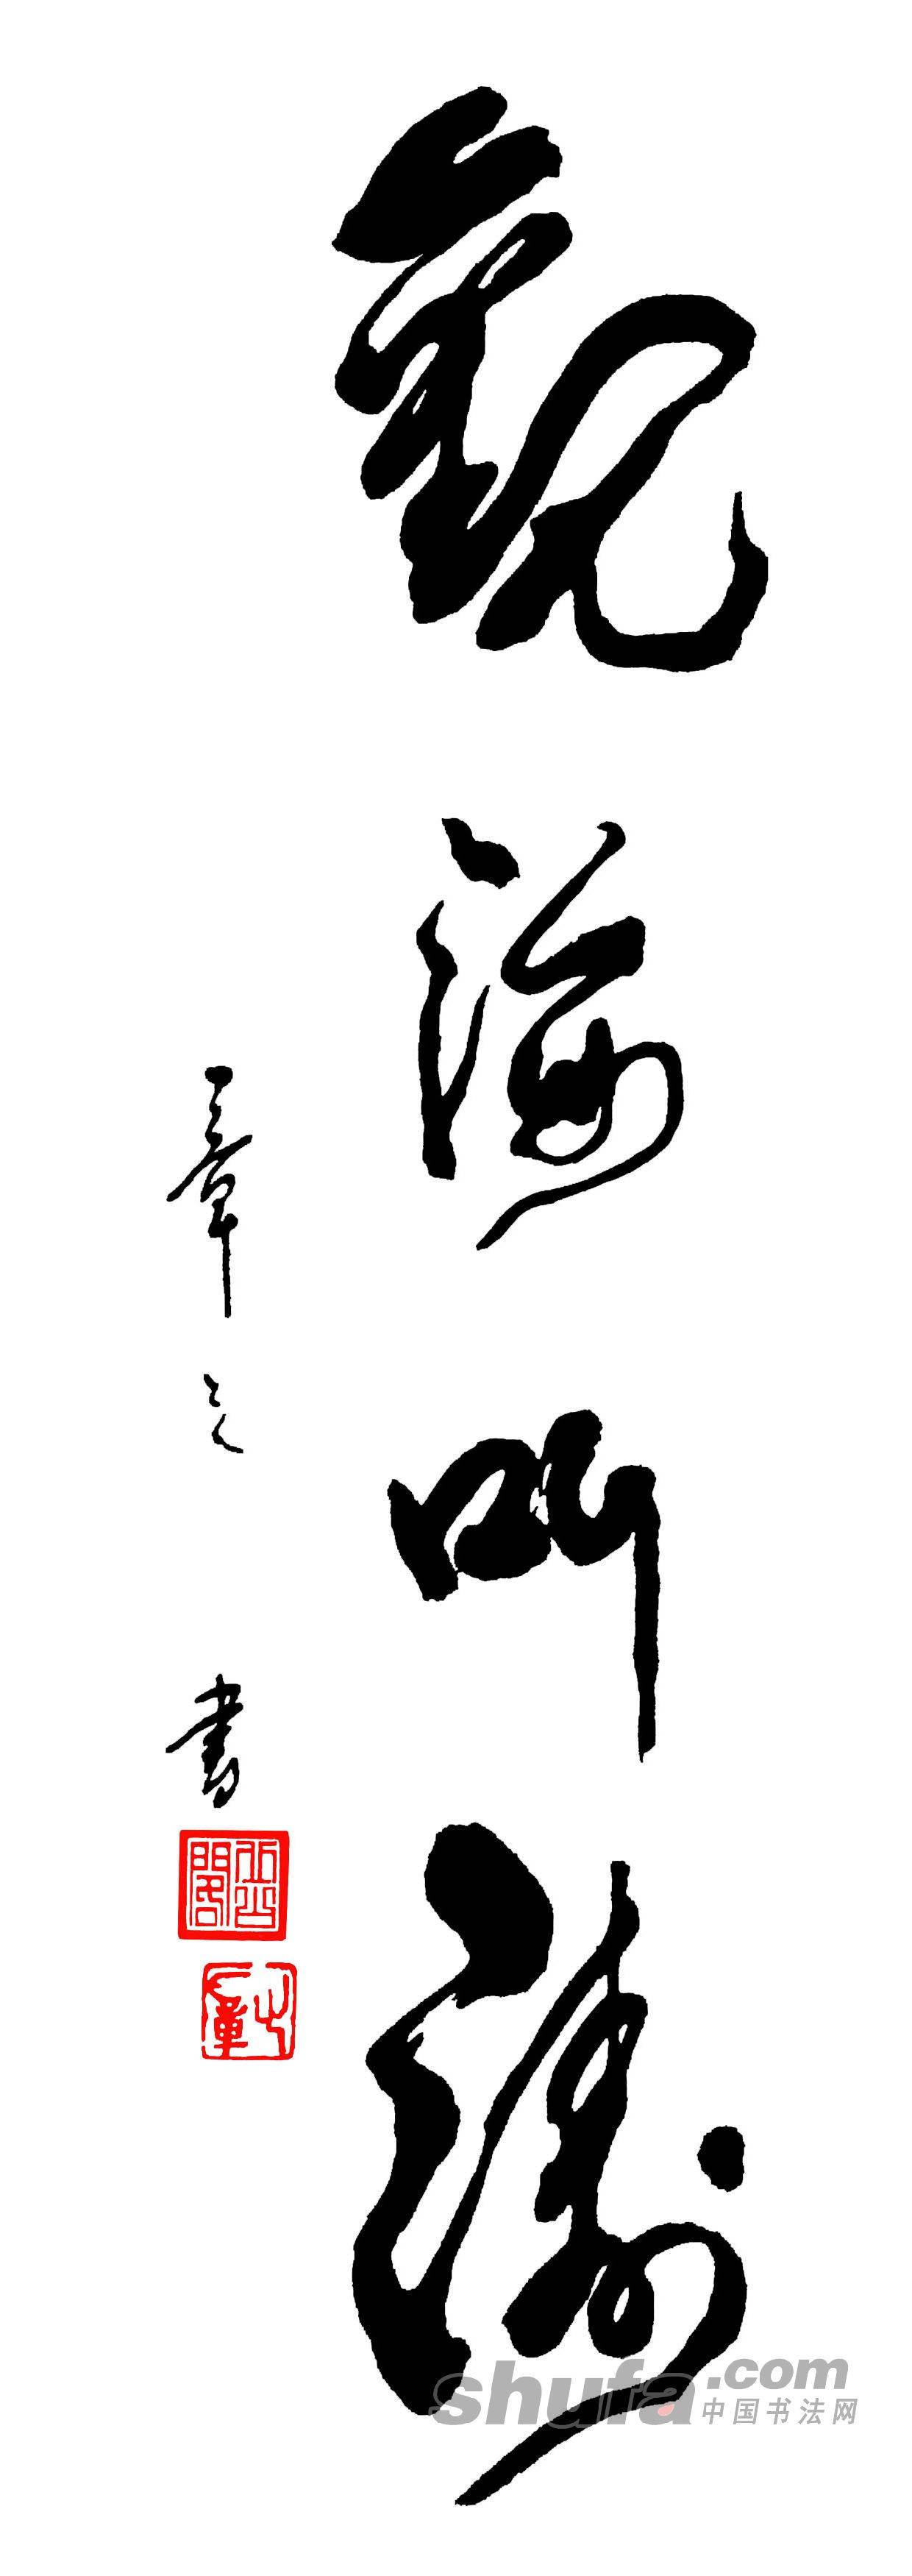 觀海聽濤
章之書
shufa.com
中国书法网